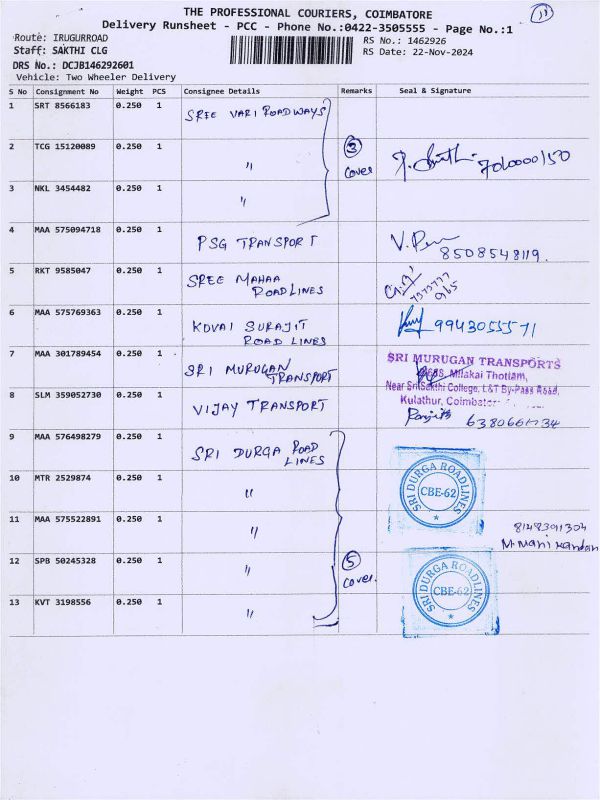 THE PROFESSIONAL COURIERS, COIMBATORE
11
Delivery Runsheet - PCC - Phone No.:0422-3505555 - Page No.:1
Route: IRUGURROAD
RS No.: 1462926
Staff: SAKTHI CLG
RS Date: 22-Nov-2024
DRS No.: DCJB146292601
Vehicle: Two Wheeler Delivery
S No Consignment No Weight PCS Consignee Details Remarks Seal & Signature
1 SRT 8566183 0.250 1 SREE VARI ROADWAYS
2 TCG 15120089 0.250 1 〃 3 Cover
3 NKL 3454482 0.250 1 〃
4 MAA 575094718 0.250 1 PSG TRANSPORT
8508548119.
5 RKT 9585047 0.250 1 SREE MAHAA
ROADLINES
6 MAA 575769363 0.250 1 KOVAI SURAJIT
ROAD LINES
9943055571
7 MAA 301789454 0.250 1 SRI MURUGAN
TRANSPORT
SRI MURUGAN TRANSPORTS
Milakai Thottam,
Near Sri Sakthi College, L&T By-Pass Road,
Kulathur,
8 SLM 359052730 0.250 1 VIJAY TRANSPORT
Ranjith
9 MAA 576498279 0.250 1 SRI DURGA ROAD
LINES
10 MTR 2529874 0.250 1 〃
SRI DURGA ROADLINES
CBE-62
11 MAA 575522891 0.250 1 〃
8148301304
M. Mani kandan
12 SPB 50245328 0.250 1 〃 5 Cover.
SRI DURGA ROADLINES
CBE-62
13 KVT 3198556 0.250 1 〃